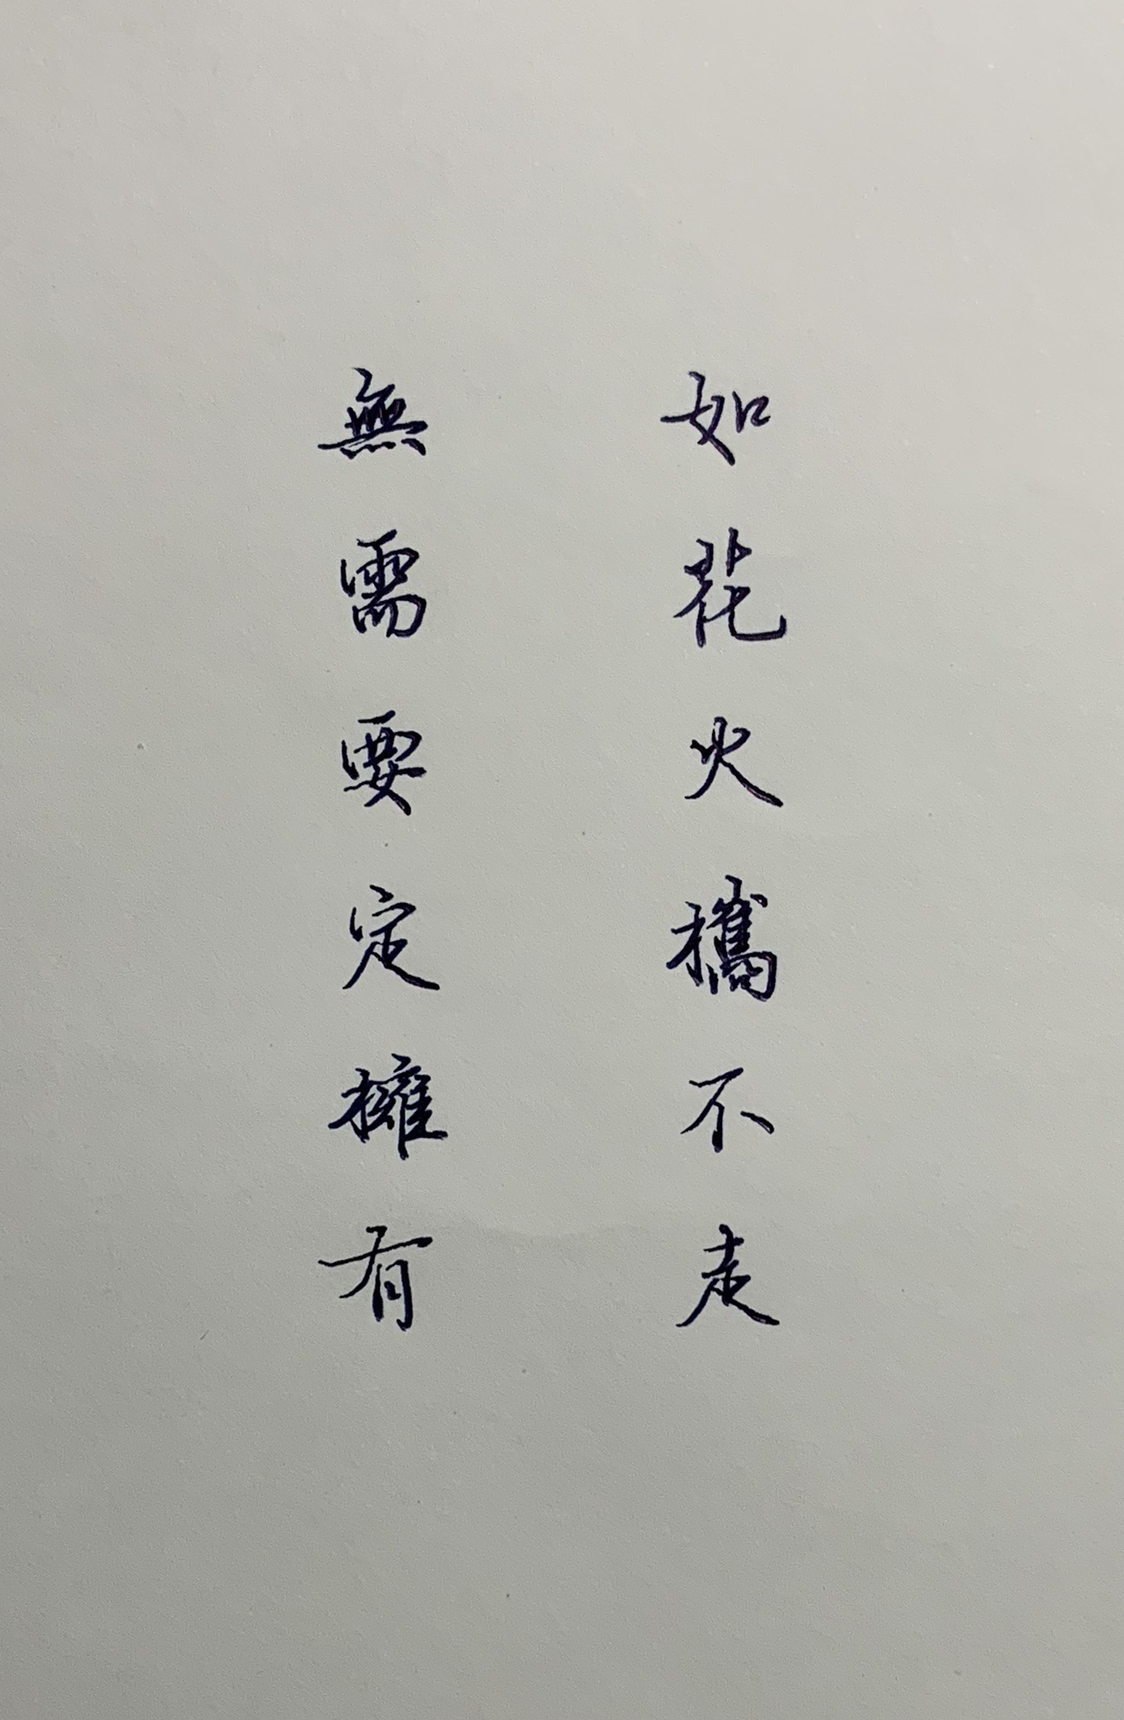 如花火攜不走
無需要定擁有